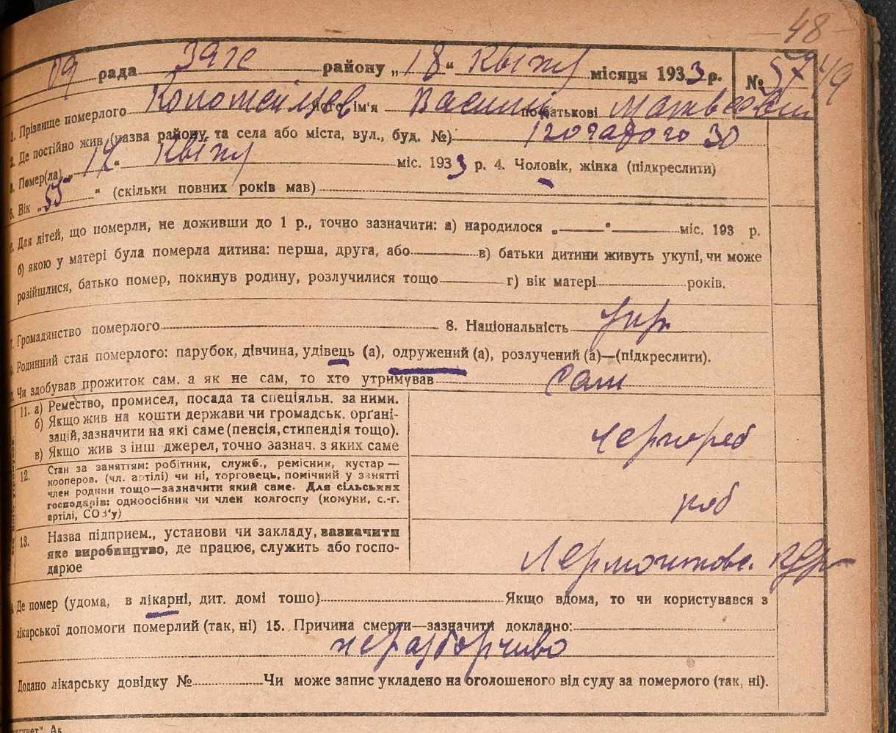 48
49
рада ЗАГС району „18“ Квітн місяця 1933 р. № 57
1. Прізвище померлого ім'я Василий по батькові
2. Де постійно жив (назва району, та села або міста, вул., буд. №) 30
3. Помер(ла) „17“ Квітн міс. 1933 р. 4. Чоловік, жінка (підкреслити)
5. Вік „55“ (скільки повних років мав)
6. Для дітей, що померли, не доживши до 1 р., точно зазначити: а) народилося „ “ міс. 193 р.
б) якою у матері була померла дитина: перша, друга, або в) батьки дитини живуть укупі, чи може
розійшлися, батько помер, покинув родину, розлучилися тощо г) вік матері років.
7. Громадянство померлого 8. Національність укр
Родинний стан померлого: парубок, дівчина, удівець (а), одружений (а), розлучений (а)—(підкреслити).
Чи здобував прожиток сам, а як не сам, то хто утримував Сам
11. а) Ремество, промисел, посада та спеціяльн. за ними.
б) Якщо жив на кошти держави чи громадськ. орґані-
зацій, зазначити на які саме (пенсія, стипендія тощо).
в) Якщо жив з інш джерел, точно зазнач. з яких саме
чернороб
12. Стан за заняттям: робітник, служб., ремісник, кустар—
кооперов. (чл. артілі) чи ні, торговець, помічний у занятті
член родини тощо—зазначити який саме. Для сільських
господарів: одноосібник чи член колгоспу (комуни, с.-г.
артілі, СОЗ'у)
роб
13. Назва підприєм., установи чи закладу, вазначити
яке виробництво, де працює, служить або госпо-
дарює
Де помер (удома, в лікарні, дит. домі тощо) Якщо вдома, то чи користувався з
лікарської допомоги померлий (так, ні) 15. Причина смерти—зазначити докладно:
неразборчиво
Додано лікарську довідку № Чи може запис укладено на оголошеного від суду за померлого (так, ні).